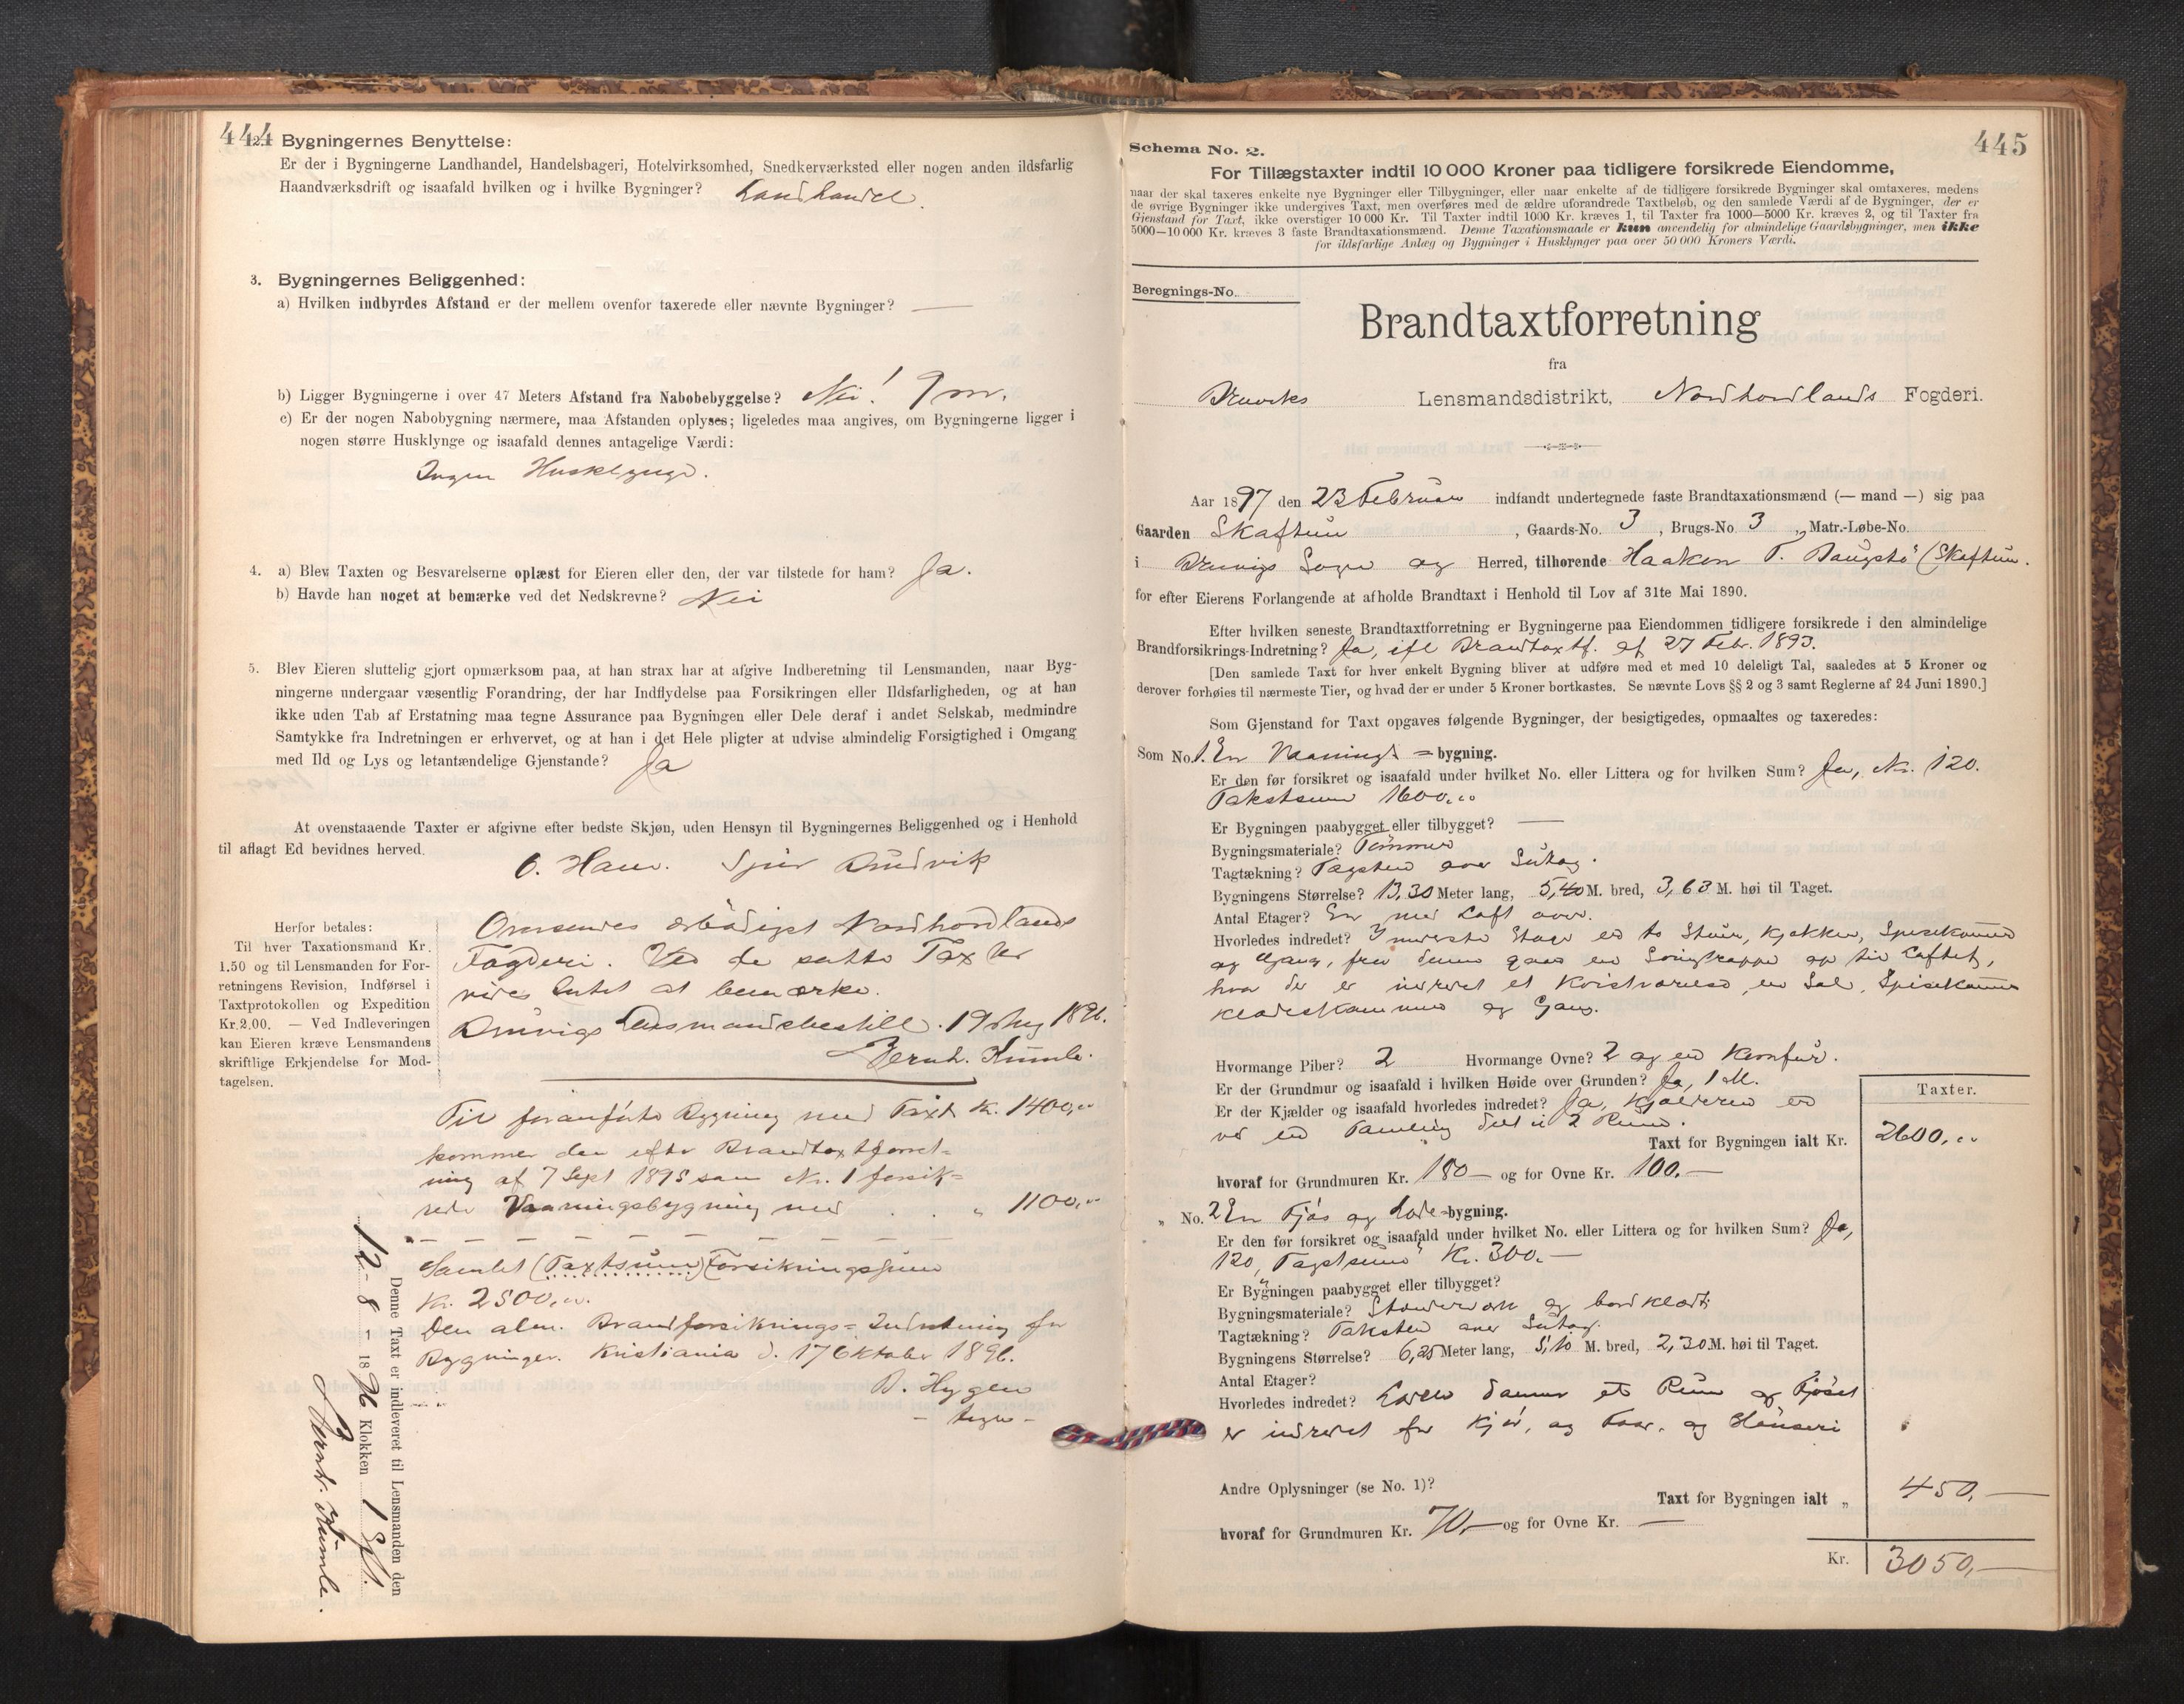 444
2. Bygningernes Benyttelse:
Er der i Bygningerne Landhandel, Handelsbageri, Hotelvirksomhed, Snedkerværksted eller nogen anden ildsfarlig
Haandværksdrift og isaafald hvilken og i hvilke Bygninger? Landhandel.
3. Bygningernes Beliggenhed:
a) Hvilken indbyrdes Afstand er der mellem ovenfor taxerede eller nævnte Bygninger? —
b) Ligger Bygningerne i over 47 Meters Afstand fra Nabobebyggelse? Nei! 9 m.
c) Er der nogen Nabobygning nærmere, maa Afstanden oplyses; ligeledes maa angives, om Bygningerne ligger i
nogen større Husklynge og isaafald dennes antagelige Værdi:
Ingen Husklynge.
4. a) Blev Taxten og Besvarelserne oplæst for Eieren eller den, der var tilstede for ham? Ja.
b) Havde han noget at bemærke ved det Nedskrevne? Nei
5. Blev Eieren sluttelig gjort opmærksom paa, at han strax har at afgive Indberetning til Lensmanden, naar Byg-
ningerne undergaar væsentlig Forandring, der har Indflydelse paa Forsikringen eller Ildsfarligheden, og at han
ikke uden Tab af Erstatning maa tegne Assurance paa Bygningen eller Dele deraf i andet Selskab, medmindre
Samtykke fra Indretningen er erhvervet, og at han i det Hele pligter at udvise almindelig Forsigtighed i Omgang
med Ild og Lys og letantændelige Gjenstande? Ja
At ovenstaaende Taxter er afgivne efter bedste Skjøn, uden Hensyn til Bygningernes Beliggenhed og i Henhold
til aflagt Ed bevidnes herved.
O. Haus. Sjur
Herfor betales:
Til hver Taxationsmand Kr.
1.50 og til Lensmanden for For-
retningens Revision, Indførsel i
Taxtprotokollen og Expedition
Kr. 2.00. — Ved Indleveringen
kan Eieren kræve Lensmandens
skriftlige Erkjendelse for Mod-
tagelsen.
Omsendes ærbødigst Nordhordlands
Fogderi. Ved de satte Taxter
vides Intet at bemærke.
Bruvigs Lensmandsbestill. 19 Aug 1896.
Bernh. Kumle.
Til foranførte Bygning med Taxt Kr. 1400,00
kommer den efter Brandtaxtforret-
ning af 7 Sept 1895 som No. 1 forsik-
rede Vaaningsbygning med . . " 1100,00
Samlet (Taxtsum) Forsikringssum
Kr. 2500,00.
Den alm. Brandforsikrings-Indretning for
Bygninger. Kristiania d. 17 Oktober 1896.
B. Hygen
Denne Taxt er indleveret til Lensmanden den
12 - 8 - 1896 Klokken 1 Eft.
Bernh. Kumle.
445
Schema No. 2.
For Tillægstaxter indtil 10 000 Kroner paa tidligere forsikrede Eiendomme,
naar der skal taxeres enkelte nye Bygninger eller Tilbygninger, eller naar enkelte af de tidligere forsikrede Bygninger skal omtaxeres, medens
de øvrige Bygninger ikke undergives Taxt, men overføres med de ældre uforandrede Taxtbeløb, og den samlede Værdi af de Bygninger, der er
Gjenstand for Taxt, ikke overstiger 10 000 Kr. Til Taxter indtil 1000 Kr. kræves 1, til Taxter fra 1000—5000 Kr. kræves 2, og til Taxter fra
5000—10 000 Kr. kræves 3 faste Brandtaxationsmænd. Denne Taxationsmaade er kun anvendelig for almindelige Gaardsbygninger, men ikke
for ildsfarlige Anlæg og Bygninger i Husklynger paa over 50 000 Kroners Værdi.
Beregnings-No.
Brandtaxtforretning
fra
Bruviks Lensmandsdistrikt, Nordhordlands Fogderi.
Aar 1897 den 23 Februar indfandt undertegnede faste Brandtaxationsmænd (— mand —) sig paa
Gaarden Skaftun, Gaards-No. 3, Brugs-No. 3, Matr.-Løbe-No.
i Bruvigs Sogn og Herred, tilhørende Haakon T. Daugstø (Skaftun.
for efter Eierens Forlangende at afholde Brandtaxt i Henhold til Lov af 31te Mai 1890.
Efter hvilken seneste Brandtaxtforretning er Bygningerne paa Eiendommen tidligere forsikrede i den almindelige
Brandforsikrings-Indretning? Ja, ifl Brandtaxtf. af 27 Febr. 1893.
[Den samlede Taxt for hver enkelt Bygning bliver at udføre med et med 10 deleligt Tal, saaledes at 5 Kroner og
derover forhøies til nærmeste Tier, og hvad der er under 5 Kroner bortkastes. Se nævnte Lovs §§ 2 og 3 samt Reglerne af 24 Juni 1890.]
Som Gjenstand for Taxt opgaves følgende Bygninger, der besigtigedes, opmaaltes og taxeredes:
Som No. 1. En Vaanings=bygning.
Er den før forsikret og isaafald under hvilket No. eller Littera og for hvilken Sum? Ja, No. 120.
Takstsum 1600,00
Er Bygningen paabygget eller tilbygget? —
Bygningsmateriale? Tømmer
Tagtækning? Tagsten over Sutag.
Bygningens Størrelse? 13,30 Meter lang, 5,40 M. bred, 3,63 M. høi til Taget.
Antal Etager? En med Loft over.
Hvorledes indredet? I nederste Etage er to Stuer, Kjøkken, Spisekammer
og Gang, fra denne gaar en Svingtrappe op til Loftet,
hvor der er indredet et Kvistværelse, en Sal, Spisekammer
Klædeskammer og Gang.
Hvormange Piber? 2 Hvormange Ovne? 2 og en Komfur.
Er der Grundmur og isaafald i hvilken Høide over Grunden? Ja, 1 M.
Er der Kjælder og isaafald hvorledes indredet? Ja, Kjælderen er
ved en Tømling delt i 2 Rum.
Taxter.
Taxt for Bygningen ialt Kr. 2600,00
hvoraf for Grundmuren Kr. 180— og for Ovne Kr. 100.—
" No. 2 En Fjøs og Lade=bygning.
Er den før forsikret og isaafald under hvilket No. eller Littera og for hvilken Sum? Ja,
120, Tagstsum Kr. 300.—
Er Bygningen paabygget eller tilbygget? "
Bygningsmateriale? Stenderværk og bordklædt
Tagtækning? Taksten over Sutag.
Bygningens Størrelse? 6,25 Meter lang, 5,10 M. bred, 2,30 M. høi til Taget.
Antal Etager?
Hvorledes indredet? Laden danner et Rum og Fjøset
er indredet for Kjør, og Faar, og Hønseri
Andre Oplysninger (se No. 1)?
Taxt for Bygningen ialt " 450,—
hvoraf for Grundmuren Kr. 70,— og for Ovne Kr. —
Kr. 3050,—